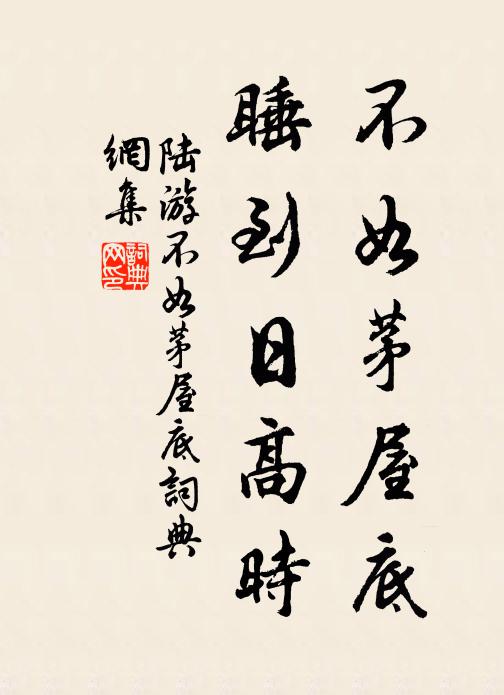 不如茅屋底
睡到日高時
陆游不如茅屋底詞典
網集
詞典网印